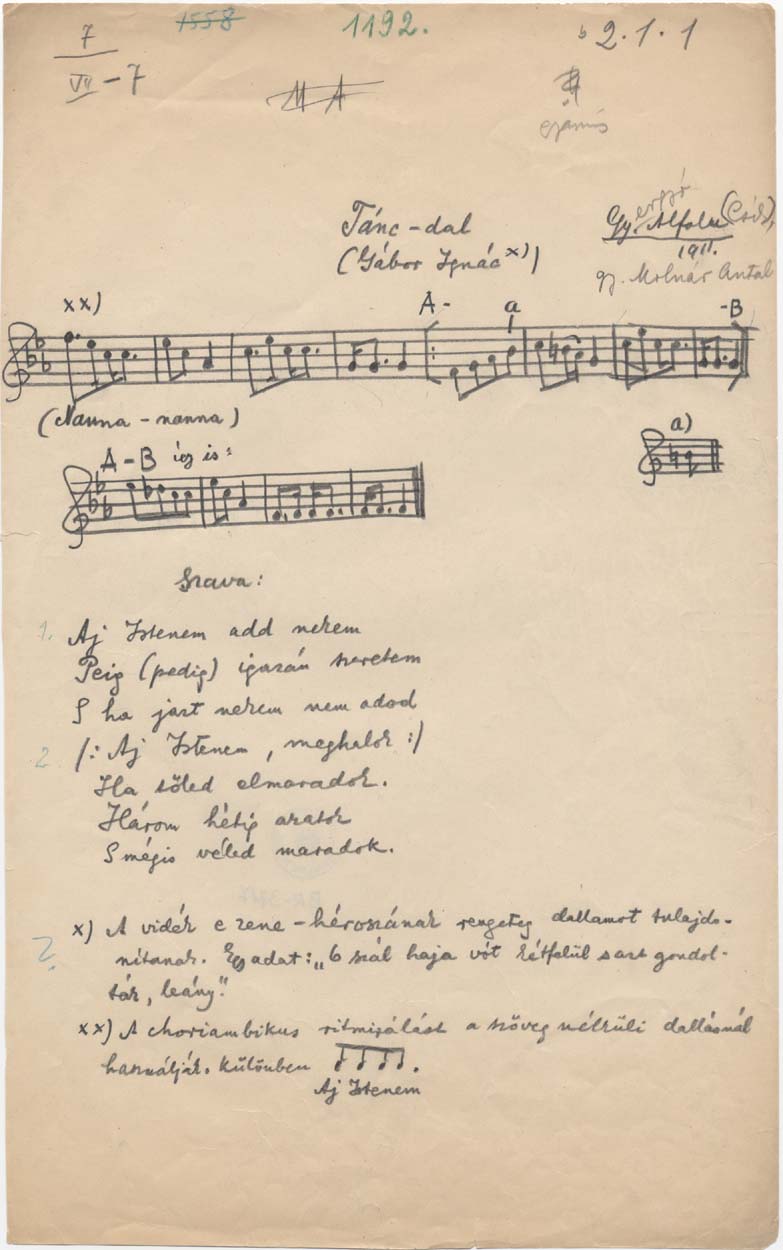 7
VII - 7
1558
1192.
2.1.1
MA
Tánc-dal
(Gábor Ignác x))
Gyergyó Alfalu (Csík),
1911.
gy. Molnár Antal
xx)
A-
a
-B
(Nanna - nanna)
A-B így is:
a)
Szava:
1. Aj Istenem add nekem
Peig (pedig) igazán szeretem
S ha jazt nekem nem adod
2. /: Aj Istenem, meghalok :/
Ha tőled elmaradok.
Három hétig aratok
S mégis véled maradok.
x) A vidék e zene-héroszának rengeteg dallamot tulajdo-
nítanak. Egy adat: „6 szál haja vót kétfelül s azt gondol-
ták, leány."
?
xx) A choriambikus ritmizálást a szöveg nélküli dallásnál
használják. Különben
Aj Istenem